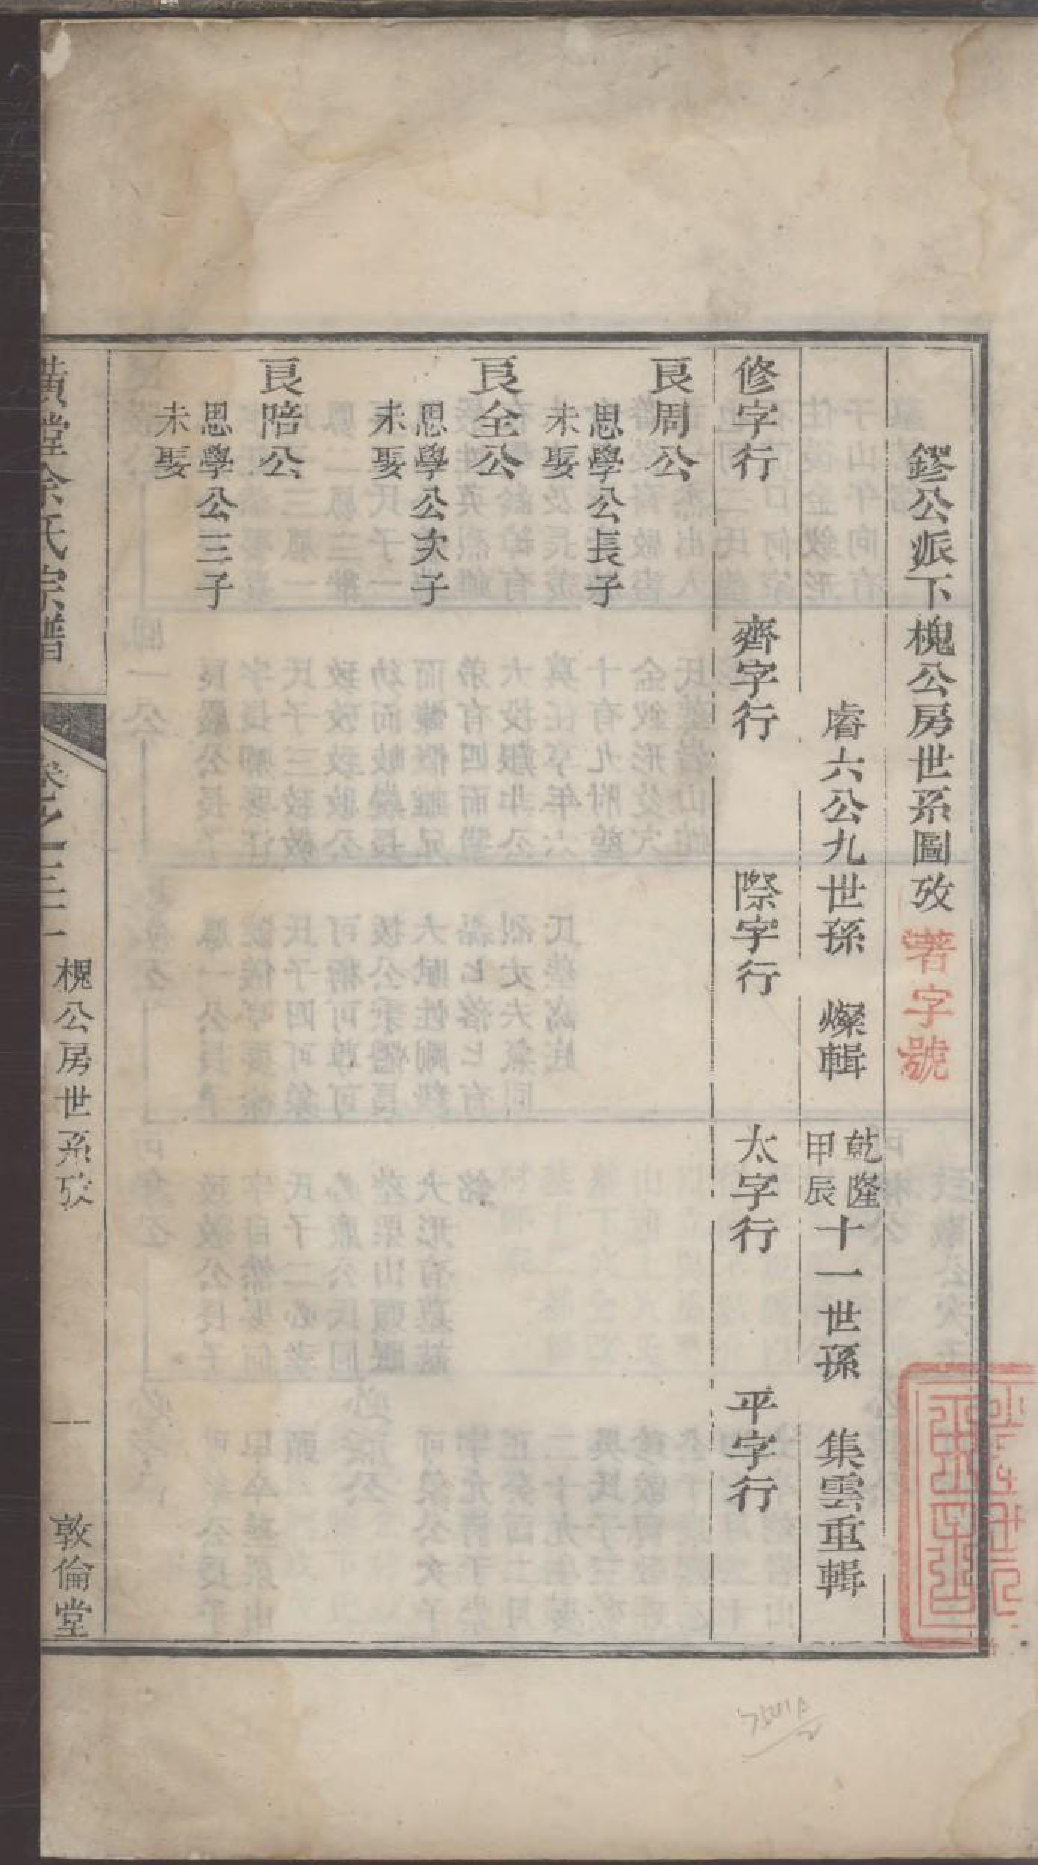 鏐公派下槐公房世系圖攷
著字號
睿六公九世孫 燦輯
乾隆甲辰十一世孫 集雲重輯
修字行 齊字行 際字行 太字行 平字行
良周公
思學公長子
未娶
良全公
思學公次子
未娶
良陪公
思學公三子
未娶
黃堂余氏宗譜 卷之三十一 槐公房世系攷 一 敦倫堂